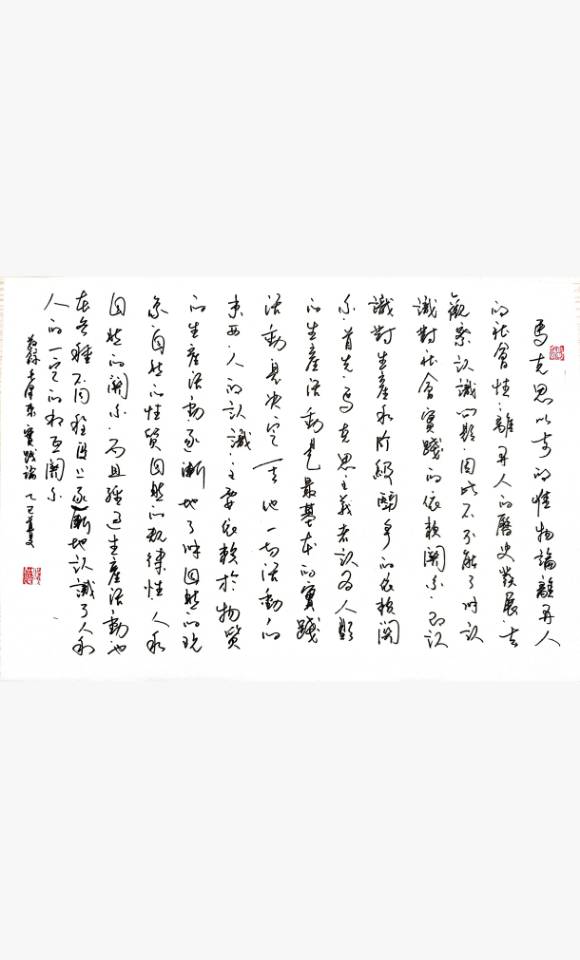 馬克思以前的惟物論離开人
的社會性離开人的歷史發展去
觀察认識问题因此不能了解认
識對社會實踐的依赖關系即认
識對生產和阶級鬪争的依赖關
系首先馬克思主義者认为人類
的生產活動是最基本的實踐
活動是决定一切其他活動的
東西人的认識主要依赖於物質
的生產活動逐漸地了解自然的現
象自然的性質自然的規律性人和
自然的關系而且經过生產活動也
在各種不同程度上逐漸地认識了人和
人的一定的相互關系
毛泽东實踐論乙巳夏